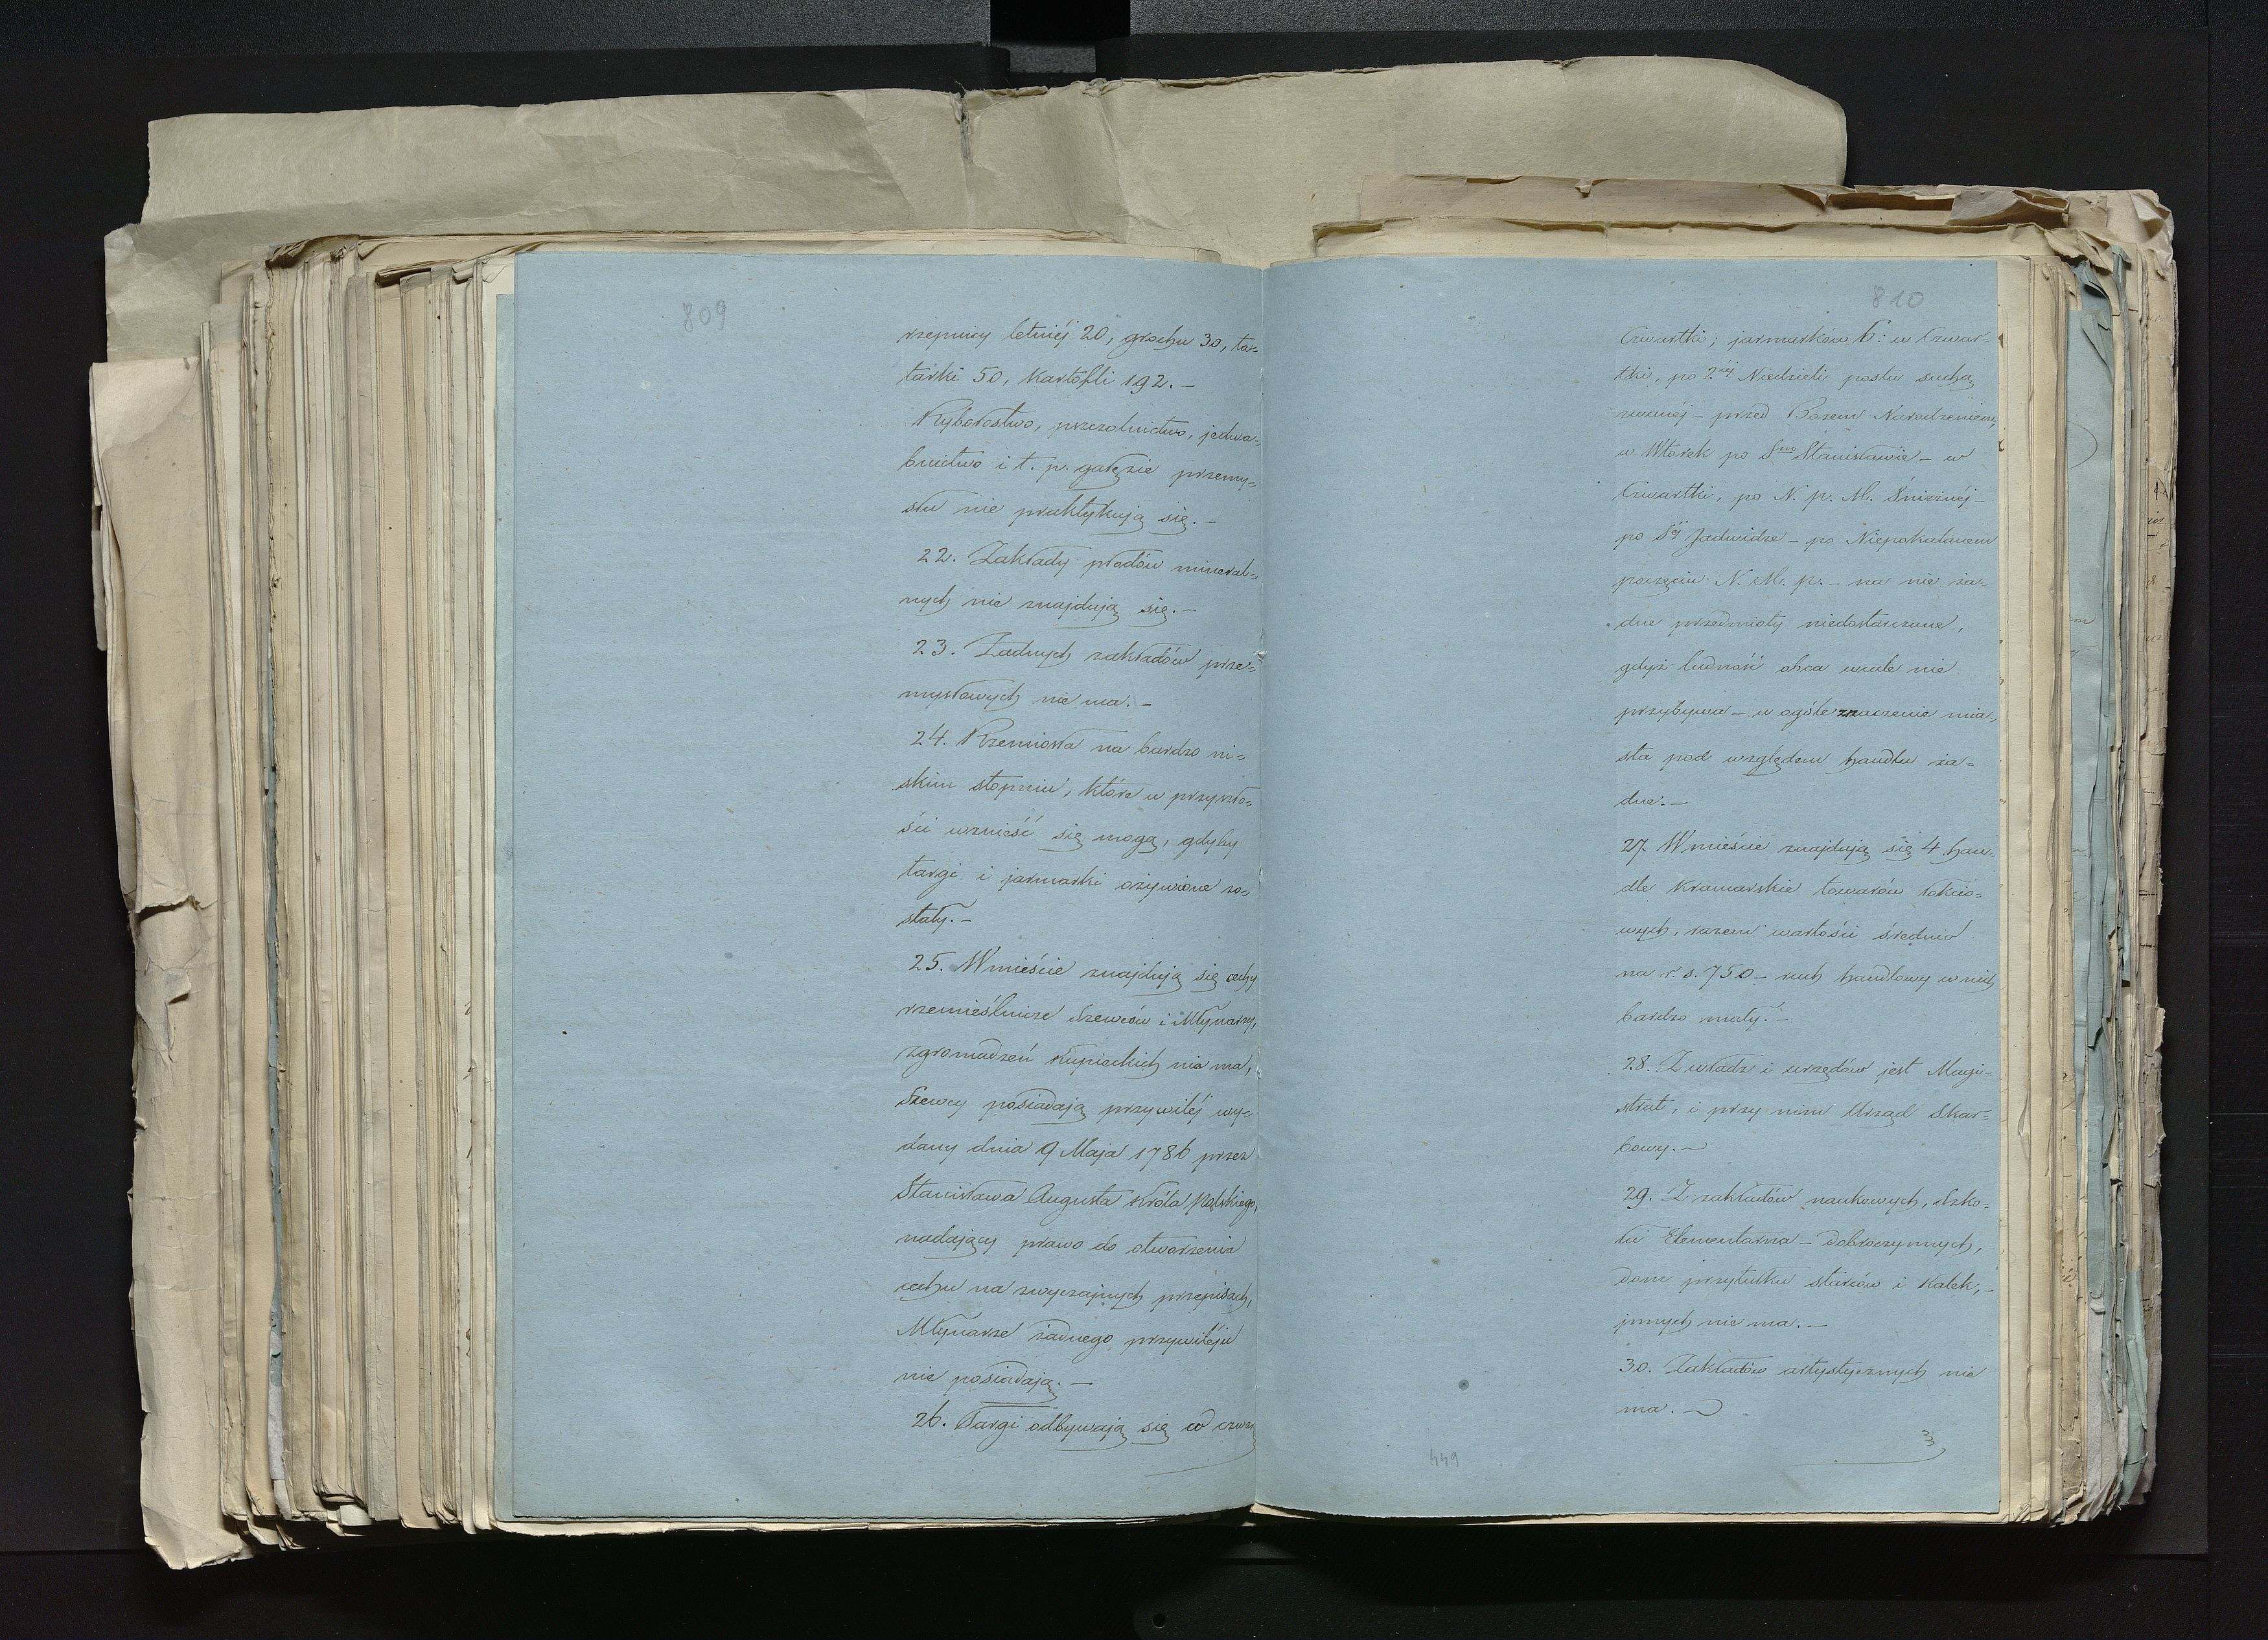 809
rzepnicy letniéj 20, grochu 30, ta=
tarki 50, kartofli 192. —
Ryborostwo, pszczolnictwo, jedwa=
bnictwo i t. p. gałęzie przemy=
słu nie praktykują się. —
22. Zakłady płodów mineral=
nych nie znajdują się. —
23. Żadnych zakładów prze=
mysłowych nie ma. —
24. Rzemiosła na bardzo ni=
skim stopniu, które w przyszło=
ści wznieść się mogą, gdyby
targi i jarmarki ożywione zo=
stały. —
25. W mieście znajdują się cechy
rzemieślnicze Szewców i Młynarzy,
zgromadzeń kupieckich nie ma,
Szewcy posiadają przywiléj wy=
dany dnia 9 Maja 1786 przez
Stanisława Augusta Króla Polskiego,
nadający prawo do otworzenia
cechu na zwyczajnych przepisach,
Młynarze żadnego przywileju
nie posiadają. —
26. Targi odbywają się w
810
Czwartki; jarmarków 6: w Czwar=
tki, po 2éj Niedzieli postu suchą
zwanéj — przed Bożem Narodzeniem,
w Wtorek po Sm Stanisławie — w
Czwartki, po N. P. M. Śnieżnéj —
po Séj Jadwidze — po Niepokalanem
poczęciu N. M. P. — na nie ża=
dne przedmioty niedostarczane,
gdyż ludność obca wcale nie
przybywa — w ogóle znaczenie mia=
sta pod względem handlu ża=
dne. —
27. W mieście znajdują się 4 han=
dle kramarskie towarów łokcio=
wych, razem wartości średnio
na r. s. 750 — ruch handlowy w nich
bardzo mały. —
28. Z władz i urzędów jest Magi=
strat, i przy nim Urząd Skar=
bowy. —
29. Z zakładów naukowych, Szko=
ła Elementarna — dobroczynnych,
dom przytułku starców i kalek, —
innych nie ma. —
30. Zakładów artystycznych nie
ma. —
449